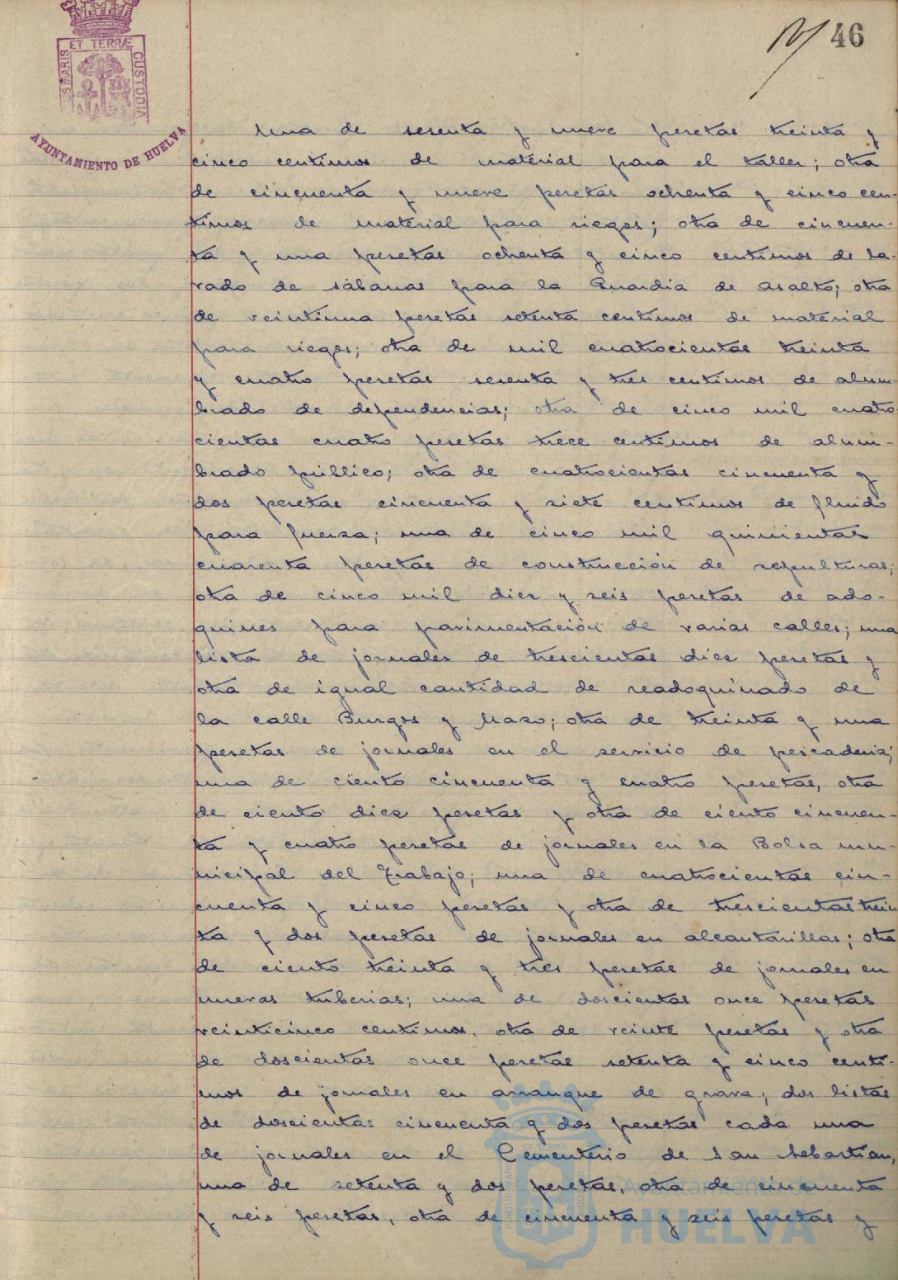 46
ET TERRÆ
S MARIS
CUSTODIA
AYUNTAMIENTO DE HUELVA
Una de sesenta y nueve pesetas treinta y
cinco centimos de material para el taller; otra
de cincuenta y nueve pesetas ochenta y cinco cen-
timos de material para riegos; otra de cincuen-
ta y una pesetas ochenta y cinco centimos de la-
vado de sábanas para la Guardia de Asalto; otra
de veintiuna pesetas setenta centimos de material
para riegos; otra de mil cuatrocientas treinta
y cuatro pesetas sesenta y tres centimos de alum-
brado de dependencias; otra de cinco mil cuatro
cientas cuatro pesetas trece centimos de alum-
brado público; otra de cuatrocientas cincuenta y
dos pesetas cincuenta y siete centimos de fluido
para fuerza; una de cinco mil quinientas
cuarenta pesetas de construcción de sepulturas;
otra de cinco mil diez y seis pesetas de ado-
quines para pavimentación de varias calles; una
lista de jornales de trescientas diez pesetas y
otra de igual cantidad de readoquinado de
la calle Burgos y Mazo; otra de treinta y una
pesetas de jornales en el servicio de pescaderia;
una de ciento cincuenta y cuatro pesetas, otra
de ciento diez pesetas y otra de ciento cincuen-
ta y cuatro pesetas de jornales en la Bolsa mu-
nicipal del Trabajo; una de cuatrocientas cin-
cuenta y cinco pesetas y otra de trescientas trein
ta y dos pesetas de jornales en alcantarillas; otra
de ciento treinta y tres pesetas de jornales en
nuevas tuberias; una de doscientas once pesetas
veinticinco centimos, otra de veinte pesetas y otra
de doscientas once pesetas setenta y cinco centi-
mos de jornales en arranque de grava; dos listas
de doscientas cincuenta y dos pesetas cada una
de jornales en el Cementerio de San Sebastian,
una de setenta y dos pesetas, otra de cincuenta
y seis pesetas, otra de cincuenta y seis pesetas y
Ayuntamiento de
HUELVA